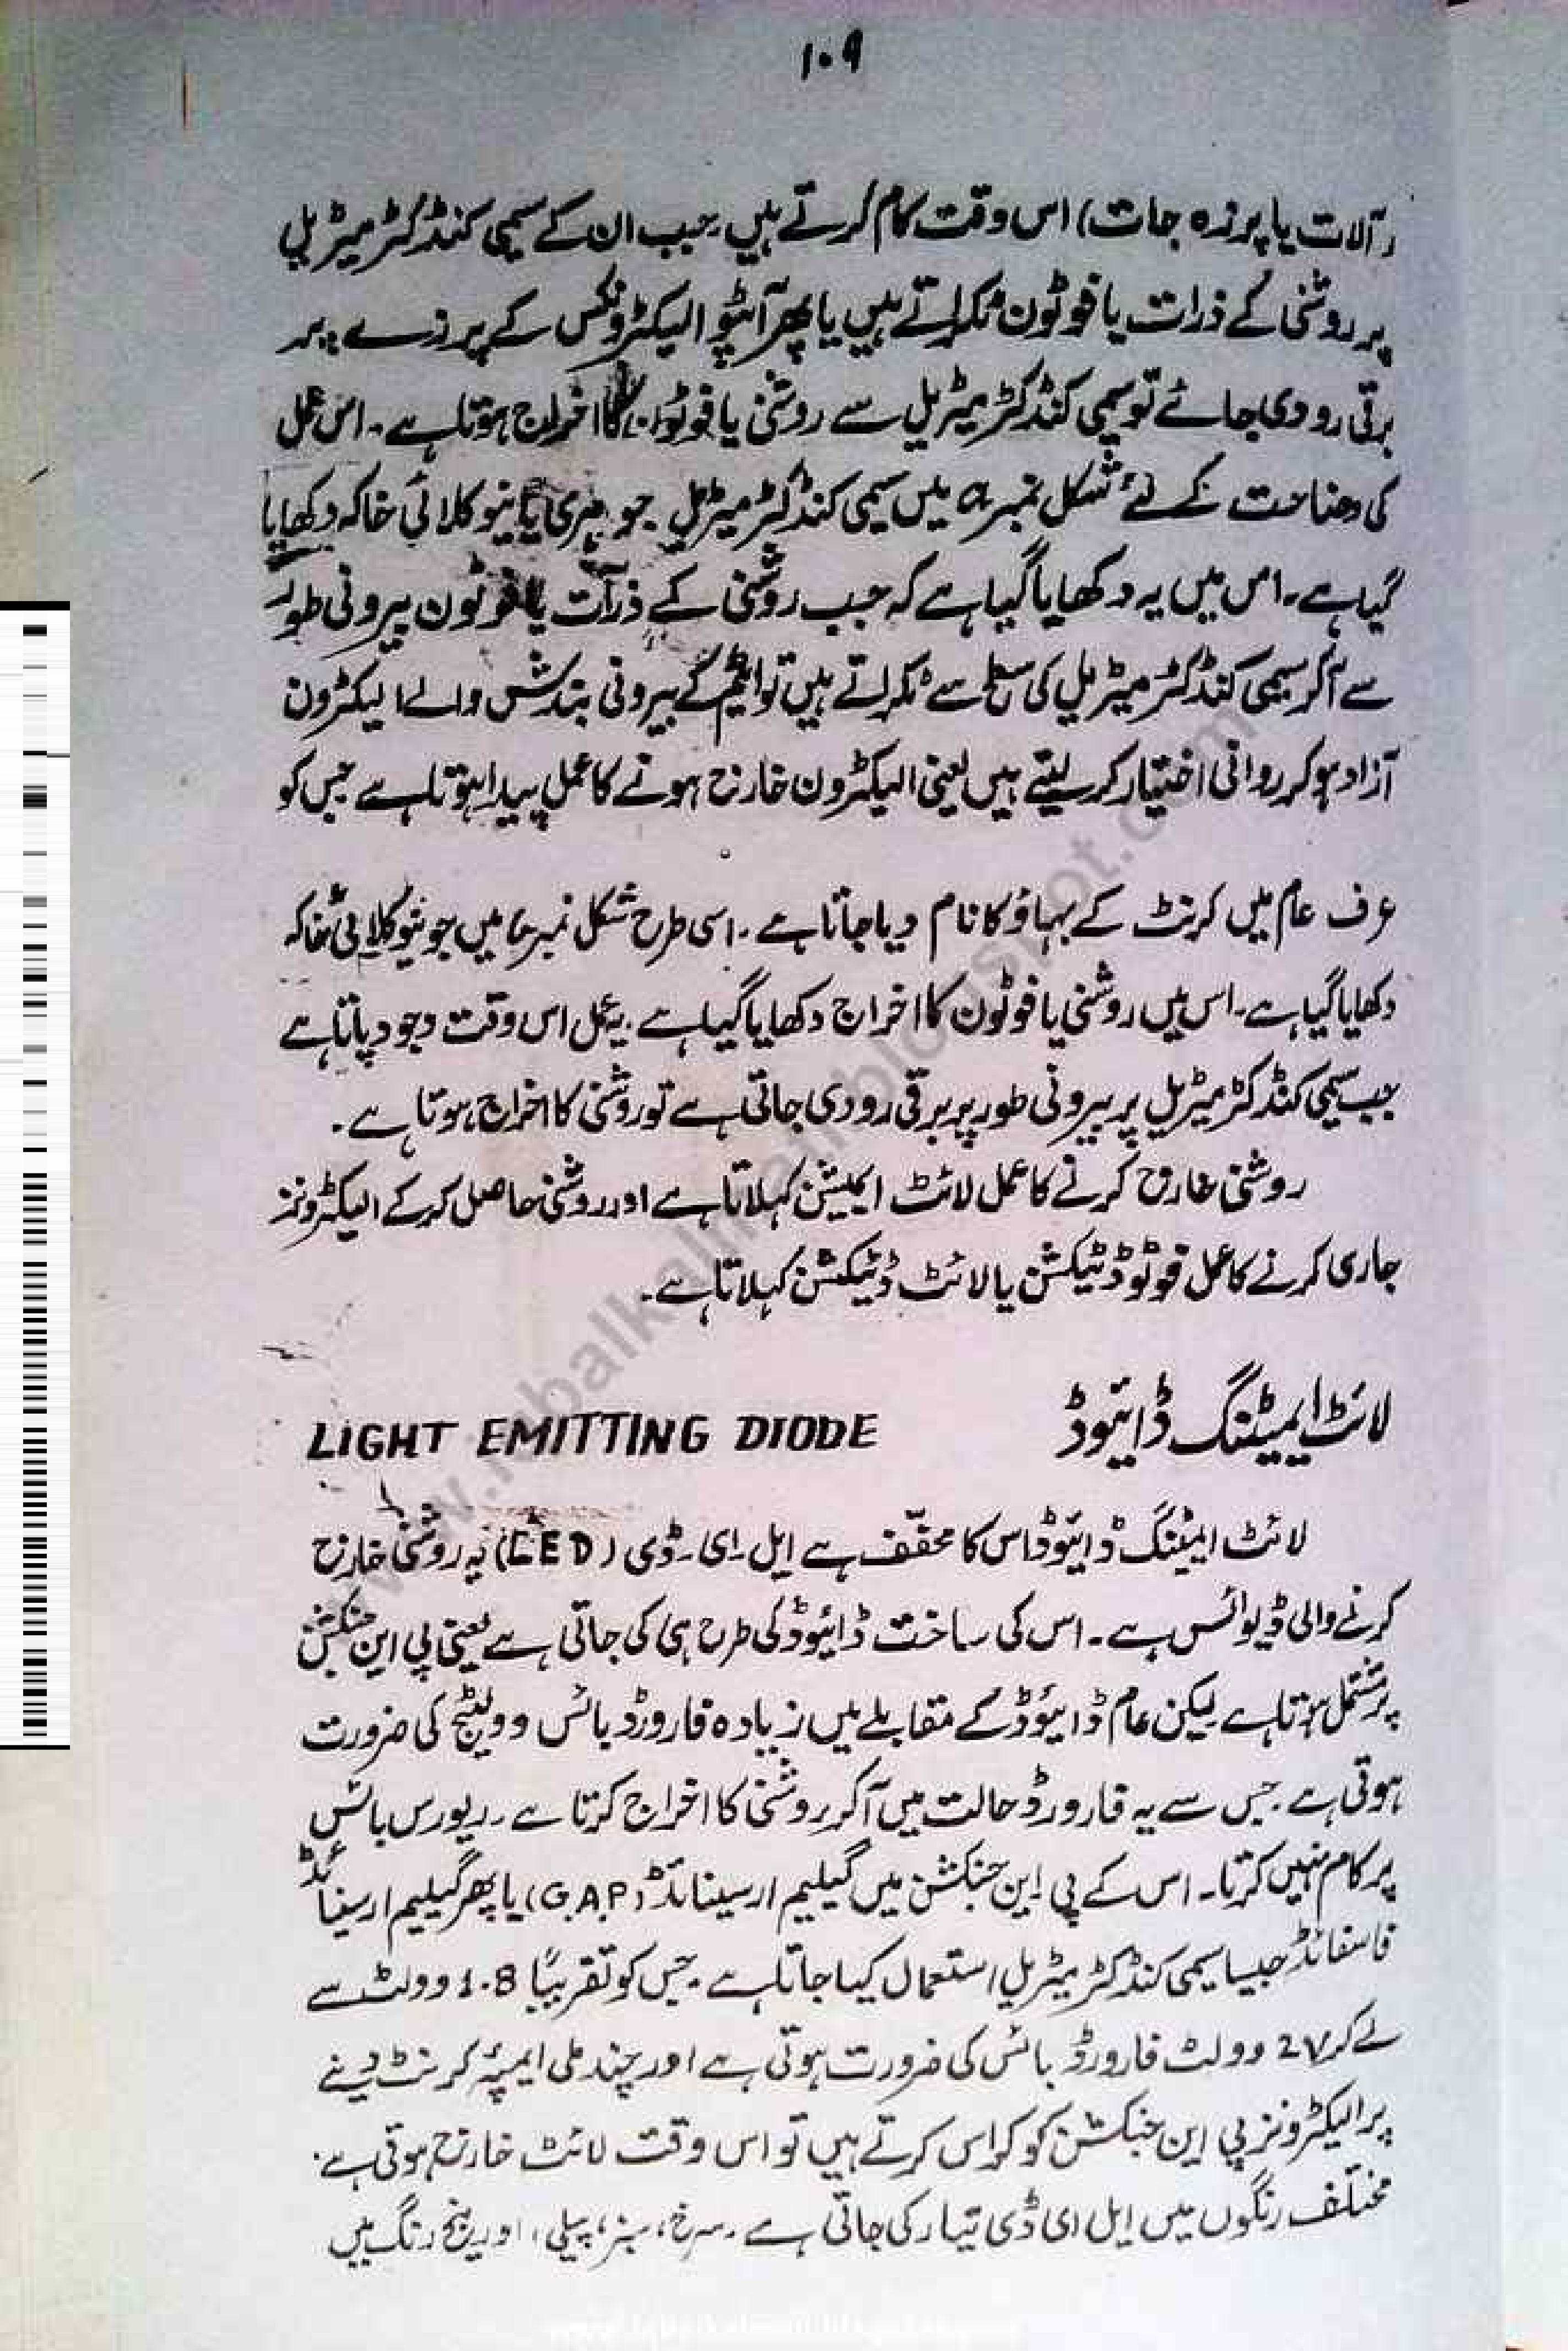 ۱۰۹
(آلات یا پرزہ جات) اس وقت کام کرتے ہیں جب ان کے سیمی کنڈکٹر میٹریل
پر روشنی کے ذرات یا فوٹون ٹکراتے ہیں یا پھر آپٹو الیکٹرونکس کے پرزے پر
برقی رو دی جائے تو سیمی کنڈکٹر میٹریل سے روشنی یا فوٹون کا اخراج ہوتا ہے۔ اس عمل
کی وضاحت کے لئے شکل نمبر a میں سیمی کنڈکٹر میٹریل جوہری یا نیوکلائی خاکہ دکھایا
گیا ہے۔ اس میں یہ دکھایا گیا ہے کہ جب روشنی کے ذرات یا فوٹون بیرونی طور
سے آکر سیمی کنڈکٹر میٹریل کی سطح سے ٹکراتے ہیں تو ایٹم کے بیرونی بندش والے الیکٹرون
آزاد ہو کر روانی اختیار کر لیتے ہیں یعنی الیکٹرون خارج ہونے کا عمل پیدا ہوتا ہے جس کو
عرف عام میں کرنٹ کے بہاؤ کا نام دیا جاتا ہے۔ اسی طرح شکل نمبر میں جو نیوکلائی خاکہ
دکھایا گیا ہے۔ اس میں روشنی یا فوٹون کا اخراج دکھایا گیا ہے۔ یہ عمل اس وقت وجود پاتا ہے
جب سیمی کنڈکٹر میٹریل پر بیرونی طور پر برقی رو دی جاتی ہے تو روشنی کا اخراج ہوتا ہے۔
روشنی خارج کرنے کا عمل لائٹ ایمیشن کہلاتا ہے اور روشنی حاصل کرکے الیکٹرونز
جاری کرنے کا عمل فوٹو ڈٹیکشن یا لائٹ ڈٹیکشن کہلاتا ہے۔
لائٹ ایمیٹنگ ڈائیوڈ LIGHT EMITTING DIODE
لائٹ ایمیٹنگ ڈائیوڈ اس کا مخفّف ہے ایل۔ای۔ڈی (LED) یہ روشنی خارج
کرنے والی ڈیوائس ہے۔ اس کی ساخت ڈائیوڈ کی طرح ہی کی جاتی ہے یعنی پی این جنکشن
پر مشتمل ہوتا ہے لیکن عام ڈائیوڈ کے مقابلے میں زیادہ فارورڈ بائس وولٹیج کی ضرورت
ہوتی ہے۔ جس سے یہ فارورڈ حالت میں آکر روشنی کا اخراج کرتا ہے۔ ریورس بائس
پر کام نہیں کرتا۔ اس کے پی این جنکشن میں گیلیم ارسینائڈ (G.A.P) یا پھر گیلیم ارسینائڈ
فاسفائڈ جیسا سیمی کنڈکٹر میٹریل استعمال کیا جاتا ہے۔ جس کو تقریباً 1.8 وولٹ سے
لے کر 2V وولٹ فارورڈ بائس کی ضرورت ہوتی ہے اور چند ملی ایمپیئر کرنٹ دینے
پر الیکٹرونز پی این جنکشن کو کراس کرتے ہیں تو اس وقت لائٹ خارج ہوتی ہے۔
مختلف رنگوں میں ایل ای ڈی تیار کی جاتی ہے۔ سرخ، سبز، پیلی، اورینج رنگ میں